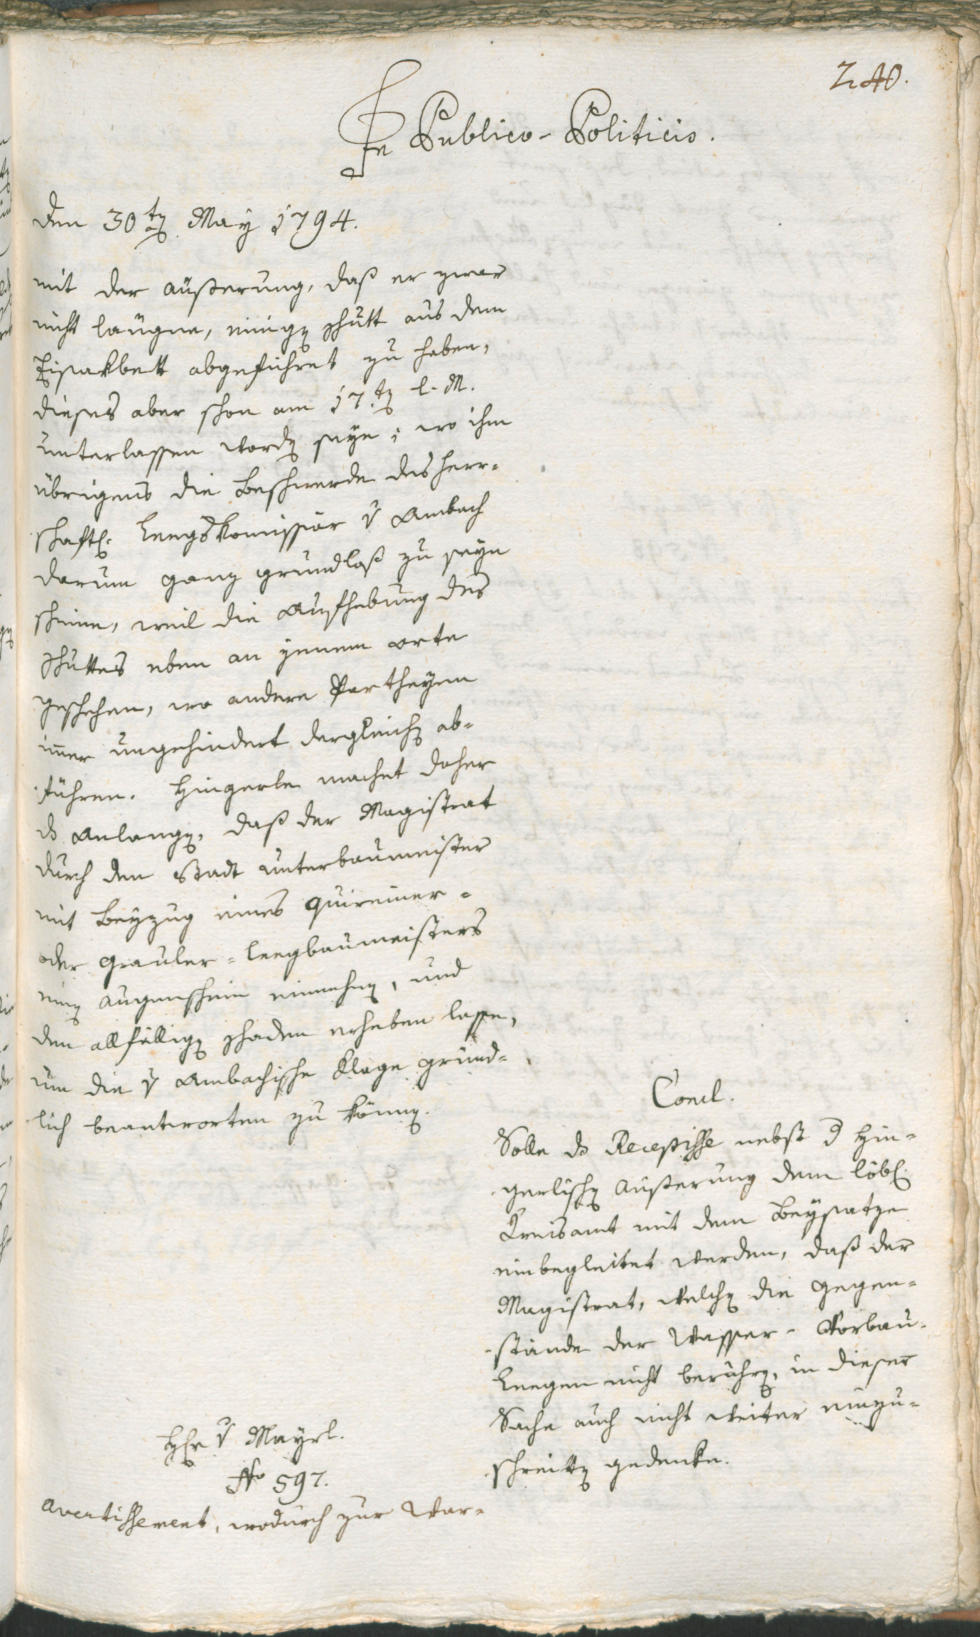 240.
In Publico-Politicis.
den 30ten May 1794.
mit der Äußerung, daß er zwar
nicht laügne, einigen Schutt aus dem
Eisakbett abgeführet zu haben,
dieses aber schon am 17.ten l. M.
unterlassen worden seye; wo ihm
übrigens die Beschwerde des herr-
schaftl. Leegskomissär v Ambach
darum ganz grundlaß zu seyn
scheine, weil die Aufhebung des
Schuttes eben an jenem orte
geschehen, wo andere Partheyen
immer ungehindert dergleichen ab-
führen. Hingerle machet daher
ds Anlangen, daß der Magistrat
durch den Stadt unterbaumeister
mit Beyzug eines Quireiner-
oder Grauler-leegbaumeisters
einen Augenschein einnehmen, und
den allfälligen Schaden erheben lasse,
um die v Ambachische Klage gründ-
lich beantworten zu können.
Concl.
Solle ds Recepisse nebst d Hin-
gerlischen Äußerung dem löbl.
Kreisamt mit dem Beysatze
einbegleitet werden, daß der
Magistrat, welchen die Gegen-
stände der Wasser-Vorbau-
Leegen nicht berühren, in dieser
Sache auch nicht weiter einzu-
schreitten gedenke.
Hr v Mayrl.
No 597.
Avertissement, wodurch zur Vor-